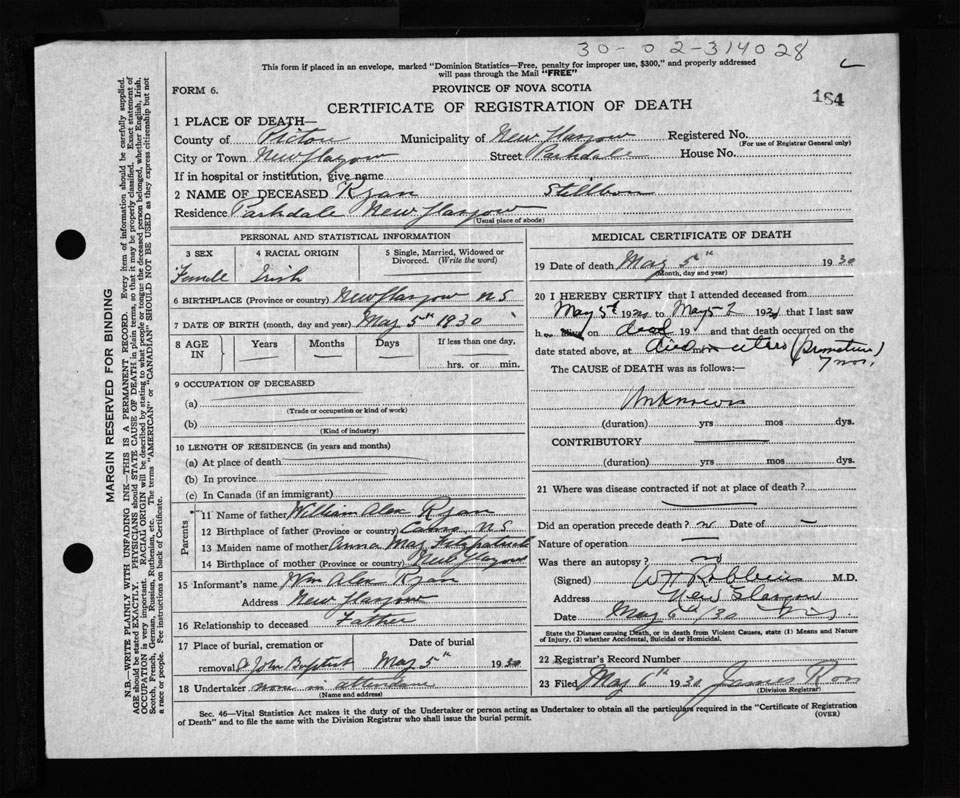 30-02-314028
This form if placed in an envelope, marked "Dominion Statistics—Free, penalty for improper use, $300," and properly addressed
will pass through the Mail "FREE"
FORM 6.
PROVINCE OF NOVA SCOTIA
184
CERTIFICATE OF REGISTRATION OF DEATH
1 PLACE OF DEATH—
County of Pictou Municipality of New Glasgow Registered No.
(For use of Registrar General only)
City or Town New Glasgow Street Parkdale House No.
If in hospital or institution, give name
2 NAME OF DECEASED Ryan Stillborn
Residence Parkdale New Glasgow
(Usual place of abode)
PERSONAL AND STATISTICAL INFORMATION
3 SEX 4 RACIAL ORIGIN 5 Single, Married, Widowed or
Divorced. (Write the word)
Femell Irish
6 BIRTHPLACE (Province or country) New Glasgow N S
7 DATE OF BIRTH (month, day and year) May 5th 1930
8 AGE IN Years Months Days If less than one day,
hrs. or min.
9 OCCUPATION OF DECEASED
(a)
(Trade or occupation or kind of work)
(b)
(Kind of industry)
10 LENGTH OF RESIDENCE (in years and months)
(a) At place of death
(b) In province
(c) In Canada (if an immigrant)
Parents
11 Name of father William Alex Ryan
12 Birthplace of father (Province or country) N S
13 Maiden name of mother Anna May Fitzpatrick
14 Birthplace of mother (Province or country) New Glasgow
15 Informant's name Wm Alex Ryan
Address New Glasgow
16 Relationship to deceased Father
17 Place of burial, cremation or Date of burial
removal St John Baptist May 5th 1930
18 Undertaker none in attendance
(Name and address)
MEDICAL CERTIFICATE OF DEATH
19 Date of death May 5th 1930
(Month, day and year)
20 I HEREBY CERTIFY that I attended deceased from
May 5th 1930 to May 5th 1930 that I last saw
h on dead 19 and that death occurred on the
date stated above, at died in utero (Premature)
7 mos.
The CAUSE of DEATH was as follows:—
Unknown
(duration) yrs mos dys.
CONTRIBUTORY
(duration) yrs mos dys.
21 Where was disease contracted if not at place of death?
Did an operation precede death? no Date of —
Nature of operation —
Was there an autopsy? no
(Signed) W H Robbins M.D.
Address New Glasgow
Date May 30 N.S.
State the Disease causing Death, or in death from Violent Causes, state (1) Means and Nature
of Injury, (2) whether Accidental, Suicidal or Homicidal.
22 Registrar's Record Number
23 Filed May 6th 1930 James Ross
(Division Registrar)
Sec. 46—Vital Statistics Act makes it the duty of the Undertaker or person acting as Undertaker to obtain all the particulars required in the "Certificate of Registration
of Death" and to file the same with the Division Registrar who shall issue the burial permit.
(OVER)
MARGIN RESERVED FOR BINDING
N.B.—WRITE PLAINLY WITH UNFADING INK—THIS IS A PERMANENT RECORD. Every item of information should be carefully supplied.
AGE should be stated EXACTLY. PHYSICIANS should STATE CAUSE OF DEATH in plain terms, so that it may be properly classified. Exact statement of
OCCUPATION is very important. RACIAL ORIGIN will be described by stating to what people or tongue the deceased person belonged, whether English, Irish,
Scotch, French, German, Russian, Ruthenian, etc. The terms "AMERICAN" or "CANADIAN" SHOULD NOT BE USED as they express citizenship but not
a race or people. Fee instructions on back of Certificate.